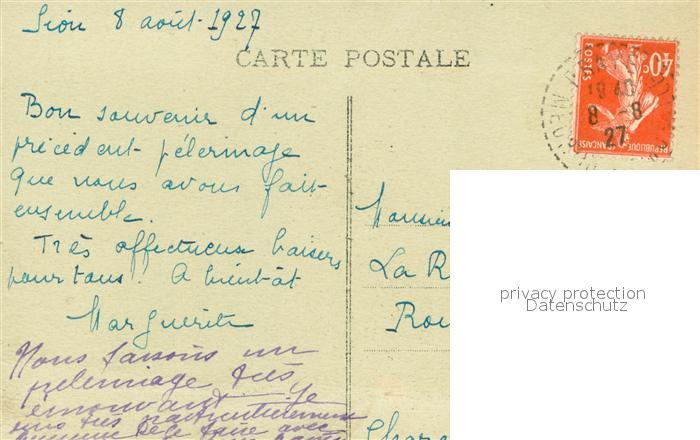 Sion 8 août 1927
CARTE POSTALE
Bon souvenir d'un
précédent pélerinage
que nous avons fait
ensemble.
Très affectueux baisers
pour tous! A bientôt
Marguerite
Nous faisons un
pelerinage très
émouvant. Je
suis très particulièrement
faire avec
Monsieur
La R
Rou
40c
POSTES
REPUBLIQUE FRANÇAISE
8 -8
27
privacy protection
Datenschutz